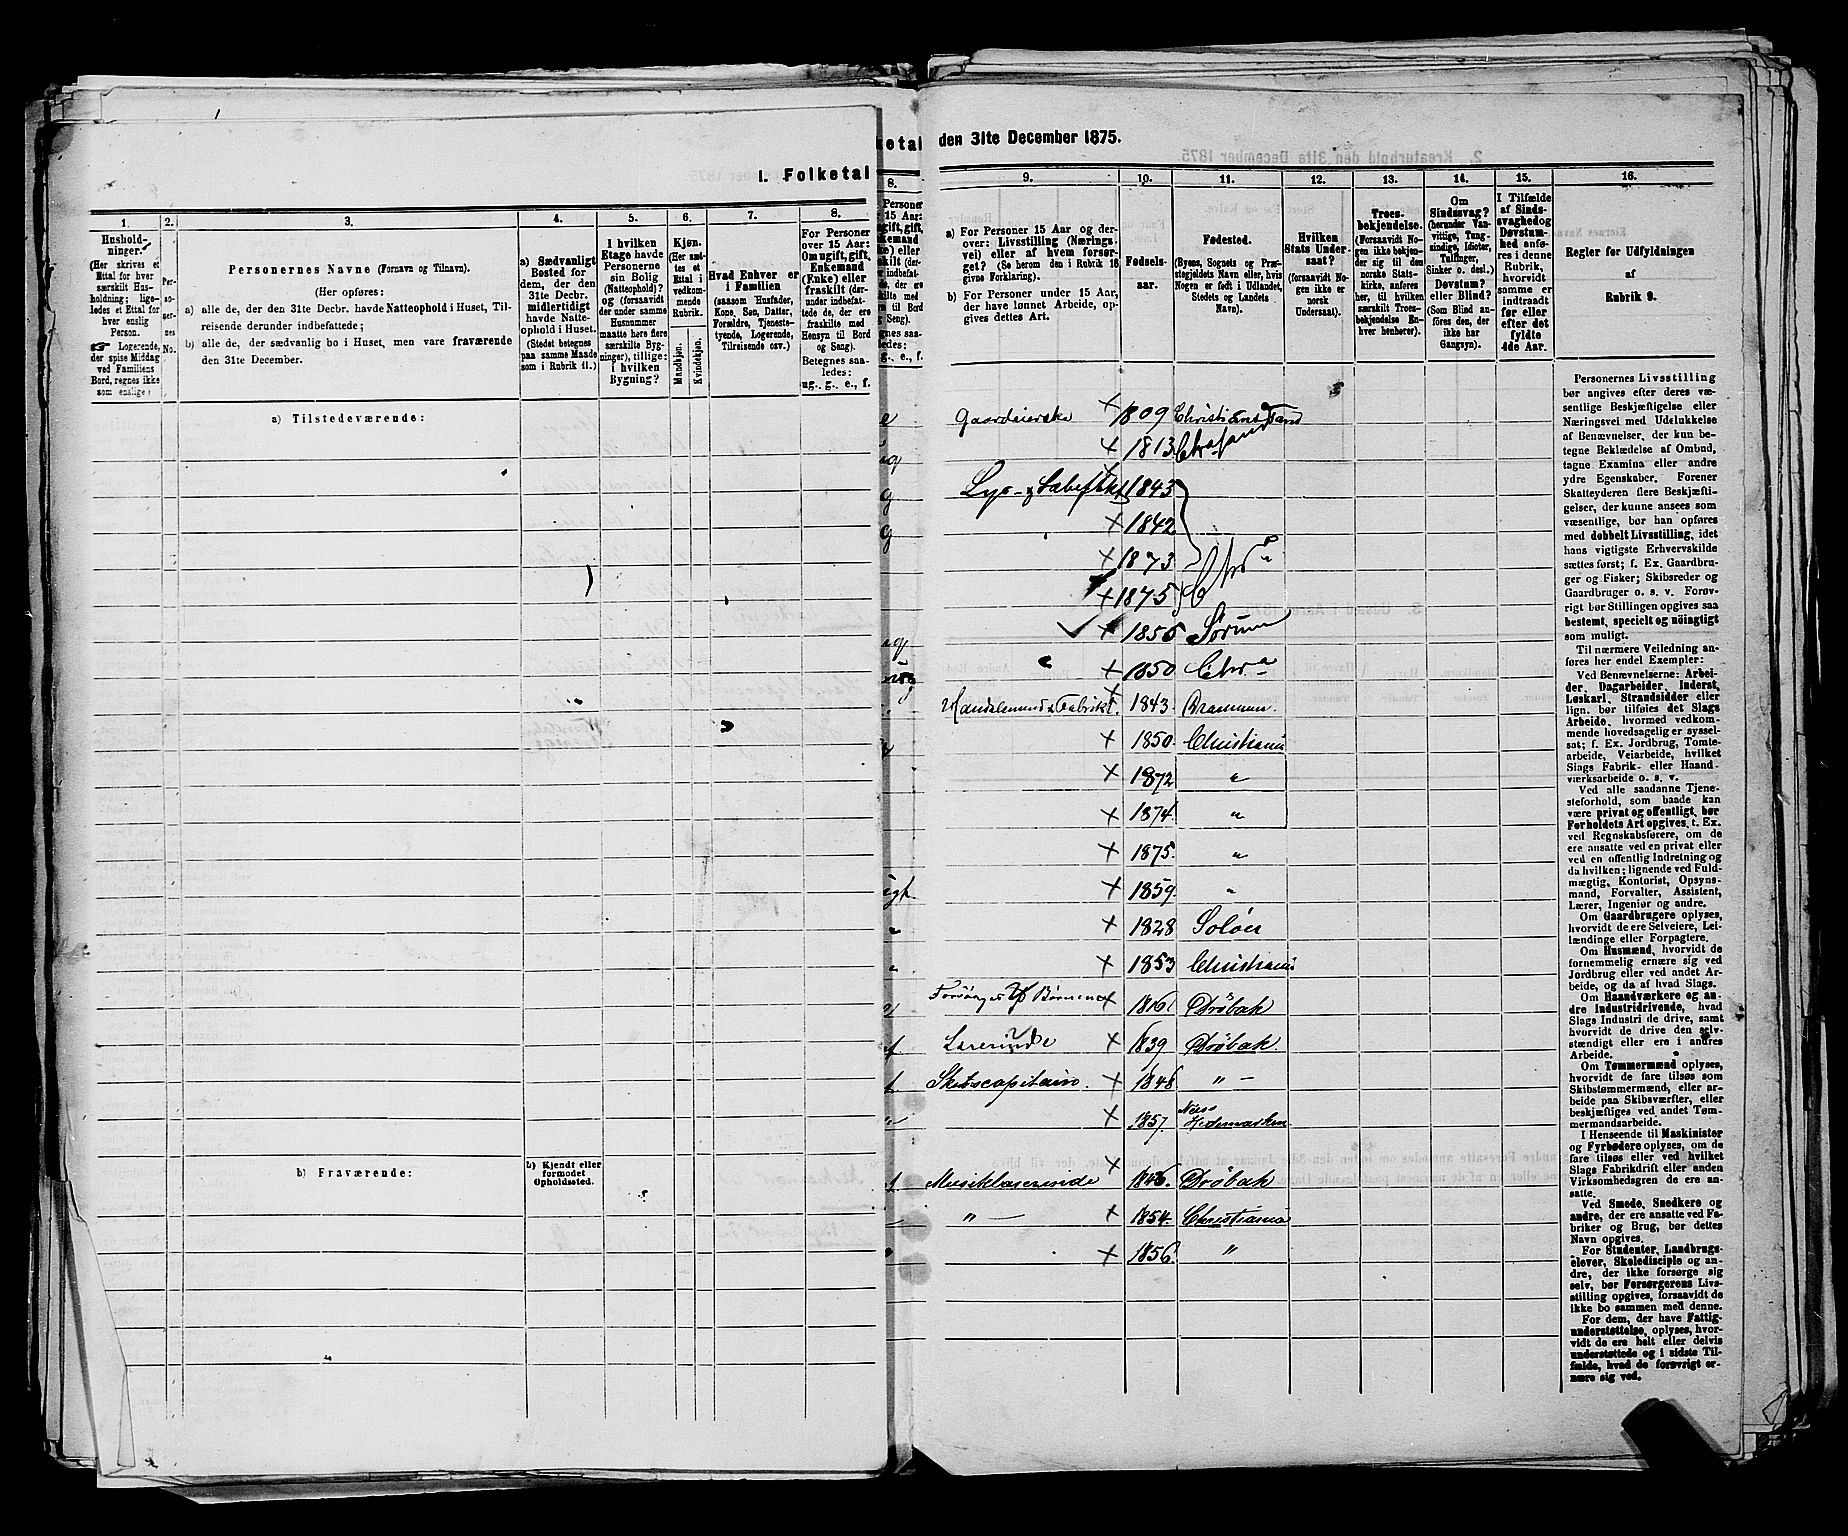 I. Folketal
1.
2.
3.
4.
5.
6.
7.
8.
Husholdninger.
(Her skrives et Ettal for hver særskilt Husholdning; ligeledes et Ettal for hver enslig Person.
Logerende, der spise Middag ved Familiens Bord, regnes ikke som enslige)
Personernes No.
Personernes Navne (Fornavn og Tilnavn).
(Her opføres:
a) alle de, der den 31te Decbr. havde Natteophold i Huset, Tilreisende derunder indbefattede;
b) alle de, der sædvanlig bo i Huset, men vare fraværende den 31te December.
a) Sædvanligt Bosted for dem, der den 31te Decbr. midlertidigt havde Natteophold i Huset.
(Stedet betegnes paa samme Maade som i Rubrik 11.)
I hvilken Etage havde Personerne sin Bolig (Natteophold)?
og (forsaavidt der under samme Husnummer maatte høre flere særskilte Bygninger), tillige: i hvilken Bygning?
Kjøn.
(Her sættes et Ettal i vedkommende Rubrik.
Mandkjøn.
Kvindekjøn.
Hvad Enhver er i Familien
(saasom Husfader, Kone, Søn, Datter, Forældre, Tjenestetyende, Logerende, Tilreisende osv.)
For Personer over 15 Aar: Om ugift, gift, Enkemand (Enke) eller fraskilt (derunder indbefattede de, der ere fraskilte med Hensyn til Bord og Seng).
Betegnes saaledes:
ug., g., e., f.
a) Tilstedeværende:
b) Fraværende:
b) Kjendt eller formodet Opholdssted.
den 31te December 1875.
9.
10.
11.
12.
13.
14.
15.
16.
a) For Personer 15 Aar og derover: Livsstilling (Næringsvei) eller af hvem forsørget? (Se herom den i Rubrik 16 givne Forklaring).
b) For Personer under 15 Aar, der have lønnet Arbeide, opgives dettes Art.
Fødselsaar.
Fødested.
(Byens, Sognets og Præstegjeldets Navn eller, hvis Nogen er født i Udlandet, Stedets og Landets Navn).
Hvilken Stats Undersaat?
(forsaavidt Nogen ikke er norsk Undersaat).
Troesbekjendelse.
(Forsaavidt Nogen ikke bekjender sig til den norske Statskirke, anføres her, til hvilken særskilt Troesbekjendelse Enhver henhører).
Om Sindssvag?
(herunder Vanvittige, Tungsindige, Idioter, Tullinger, Sinker o. desl.)
Døvstum?
eller Blind?
(Som Blind anføres den, der ikke har Gangsyn).
I Tilfælde af Sindssvaghed og Døvstumhed anføres i denne Rubrik, hvorvidt samme er indtraadt før eller efter det fyldte 4de Aar.
Regler for Udfyldningen
af
Rubrik 9.
e Gaardeierske 1809 Christianssand
1813 Chrsand
g 1843
g 1842
1873 Chra
1875
1855 Sørum
1850 Chra
Handelsmand & Fabrikt. 1843 Drammen
1850 Christiania
1872 "
1874 "
1875. "
1859 "
" 1828 Soløer
" 1853 Christiania
Forsørges af Børnene Drøbak
Lærerinde 1839 Drøbak.
Skibscapitain. 1848 " –
1857. Næs Hedemarken
Musiklærerinde 1846. Drøbak
" — 1854. Christiania
1856. "
Personernes Livsstilling
bør angives efter deres væsentlige Beskjæftigelse eller
Næringsvei med Udelukkelse
af Benævnelser, der kun betegne Beklædelse af Ombud,
tagne Examina eller andre
ydre Egenskaber. Forener
Skatteyderen flere Beskjæftigelser, der kunne ansees som
væsentlige, bør han opføres
med dobbelt Livsstilling, idet
hans vigtigste Erhvervskilde
sættes først; f. Ex. Gaardbruger og Fisker; Skibsreder og
Gaardbruger o. s. v. Forøvrigt bør Stillingen opgives saa
bestemt, specielt og nöiagtigt
som muligt.
Til nærmere Veiledning anføres her endel Exempler:
Ved Benævnelserne: Arbeider, Dagarbeider, Inderst,
Løskarl, Strandsidder eller
lign. bør tilføies det Slags
Arbeide, hvormed vedkommende hovedsagelig er sysselsat; f. Ex. Jordbrug, Tomtearbeide, Veiarbeide, hvilket
Slags Fabrik- eller Haandværksarbeide o. s. v.
Ved alle saadanne Tjenesteforhold, som baade kan
være privat og offentligt, bør
Forholdets Art opgives, t. Ex.
ved Regnskabsførere, om de
ere ansatte ved en privat eller
ved en offentlig Indretning og
da hvilken; lignende ved Fuldmægtig, Kontorist, Opsynsmand, Forvalter, Assistent,
Lærer, Ingeniør og andre.
Om Gaardbrugere oplyses,
hvorvidt de ere Selveiere, Leilændinge eller Forpagtere.
Om Husmænd, hvorvidt de
fornemmelig ernære sig ved
Jordbrug eller ved andet Arbeide, og da af hvad Slags.
Om Haandværkere og andre Industridrivende, hvad
Slags Industri de drive, samt
hvorvidt de drive den selvstændigt eller ere i andres
Arbeide.
Om Tømmermænd oplyses,
hvorvidt de fare tilsøs som
Skibstømmermænd, eller arbeide paa Skibsværfter, eller
beskjæftiges ved andet Tømmermandsarbeide.
I Henseende til Maskinister
og Fyrbødere oplyses, om de
fare tilsøs eller ved hvilket
Slags Fabrikdrift eller anden
Virksomhedsgren de ere ansatte.
Ved Smede, Snedkere og
andre, der ere ansatte ved Fabriker og Brug, bør dettes
Navn opgives.
For Studenter, Landbrugselever, Skoledisciple og andre, der ikke forsørge sig
selv, bør Forsørgerens Livsstilling opgives, forsaavidt de
ikke bo sammen med denne.
For dem, der have Fattigunderstøttelse, oplyses, hvorvidt de ere helt eller delvis
understøttede og i sidste Tilfælde, hvad de forøvrigt ernære sig ved.